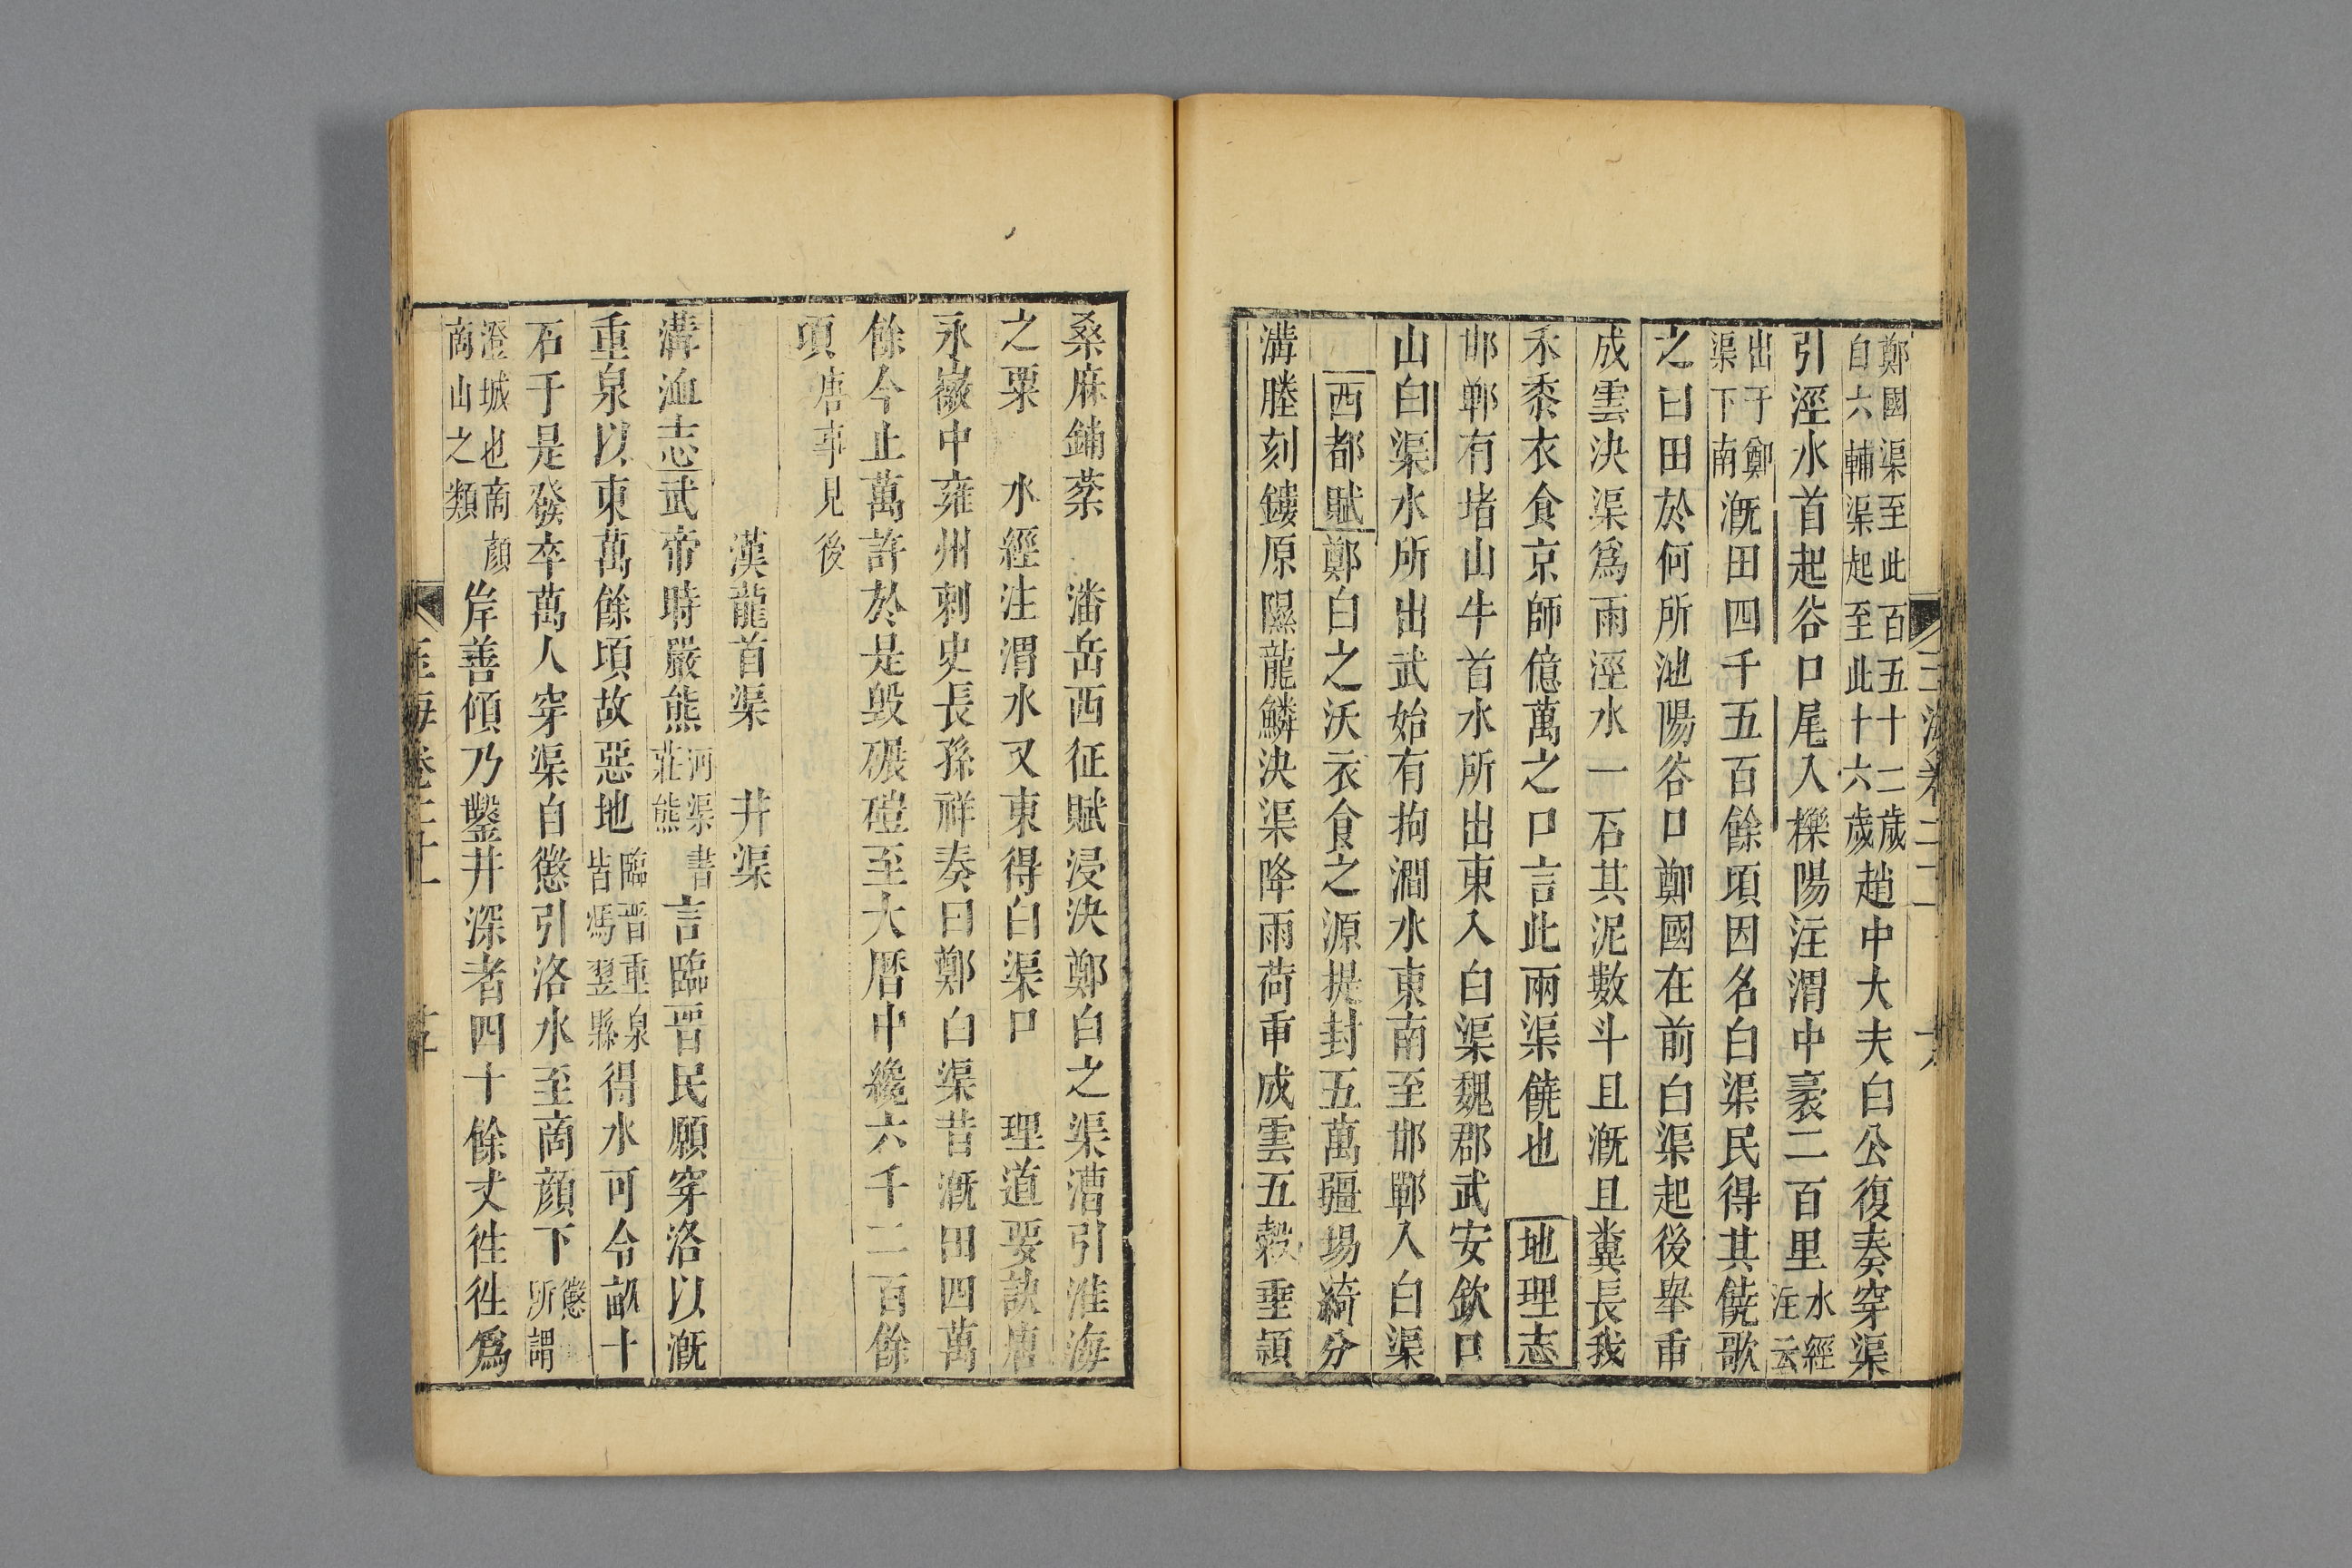 鄭國渠至此百五十二歲
自六輔渠起至此十六歲趙中大夫白公復奏穿渠
引涇水首起谷口尾入櫟陽注渭中袤二百里水經
注云
出于鄭
渠下南溉田四千五百餘頃因名白渠民得其饒歌
之曰田於何所池陽谷口鄭國在前白渠起後舉臿
成雲決渠爲雨涇水一石其泥數斗且溉且糞長我
禾黍衣食京師億萬之口言此兩渠饒也 地理志
邯鄲有堵山牛首水所出東入白渠魏郡武安欽口
山白渠水所出武始有拘澗水東南至邯鄲入白渠
西都賦鄭白之沃衣食之源提封五萬疆場綺分
溝塍刻鏤原隰龍鱗決渠降雨荷臿成雲五穀垂穎
桑麻鋪棻 潘岳西征賦浸決鄭白之渠漕引淮海
之粟 水經注渭水又東得白渠口 理道要訣唐
永徽中雍州刺史長孫祥奏曰鄭白渠昔溉田四萬
餘今止萬許於是毀碾磑至大曆中纔六千二百餘
頃唐事見後
漢龍首渠 井渠
溝洫志武帝時嚴熊河渠書
莊熊言臨晉民願穿洛以溉
重泉以東萬餘頃故惡地臨晉重泉
皆馮翌縣得水可令畝十
石于是發卒萬人穿渠自懲引洛水至商顔下懲
所謂
澄城也商顔
商山之類岸善傾乃鑿井深者四十餘丈徃徃爲